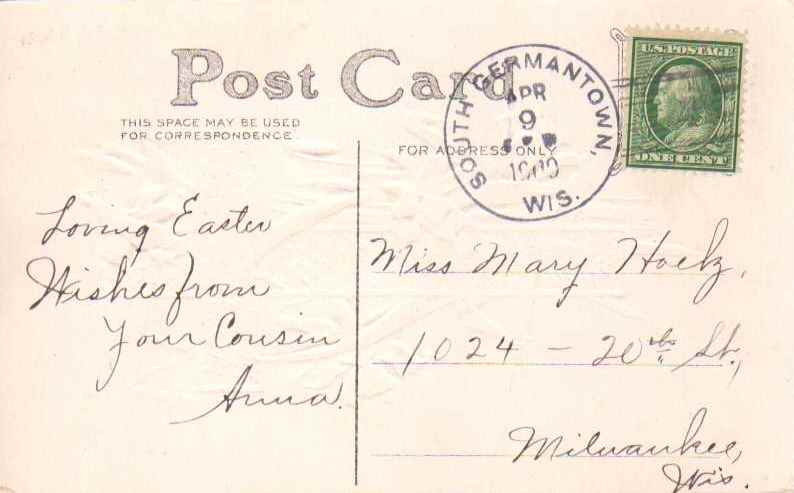 Post Card
THIS SPACE MAY BE USED
FOR CORRESPONDENCE
FOR ADDRESS ONLY
SOUTH GERMANTOWN,
APR
9
1909
WIS.
U.S. POSTAGE
ONE CENT
Loving Easter
Wishes from
Your Cousin
Anna.
Miss Mary Hoelz,
1024 — 20th St.,
Milwaukee,
Wis.